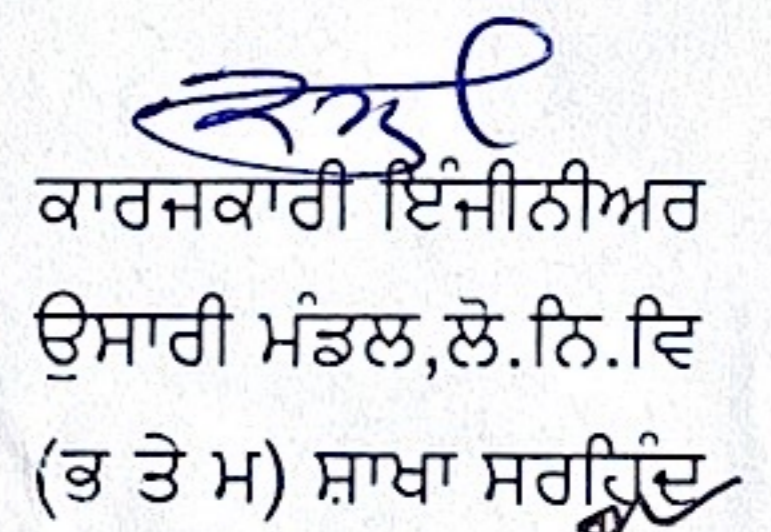 ਕਾਰਜਕਾਰੀ ਇੰਜੀਨੀਅਰ
ਉਸਾਰੀ ਮੰਡਲ,ਲੋ.ਨਿ.ਵਿ
(ਭ ਤੇ ਮ) ਸ਼ਾਖਾ ਸਰਹਿੰਦ